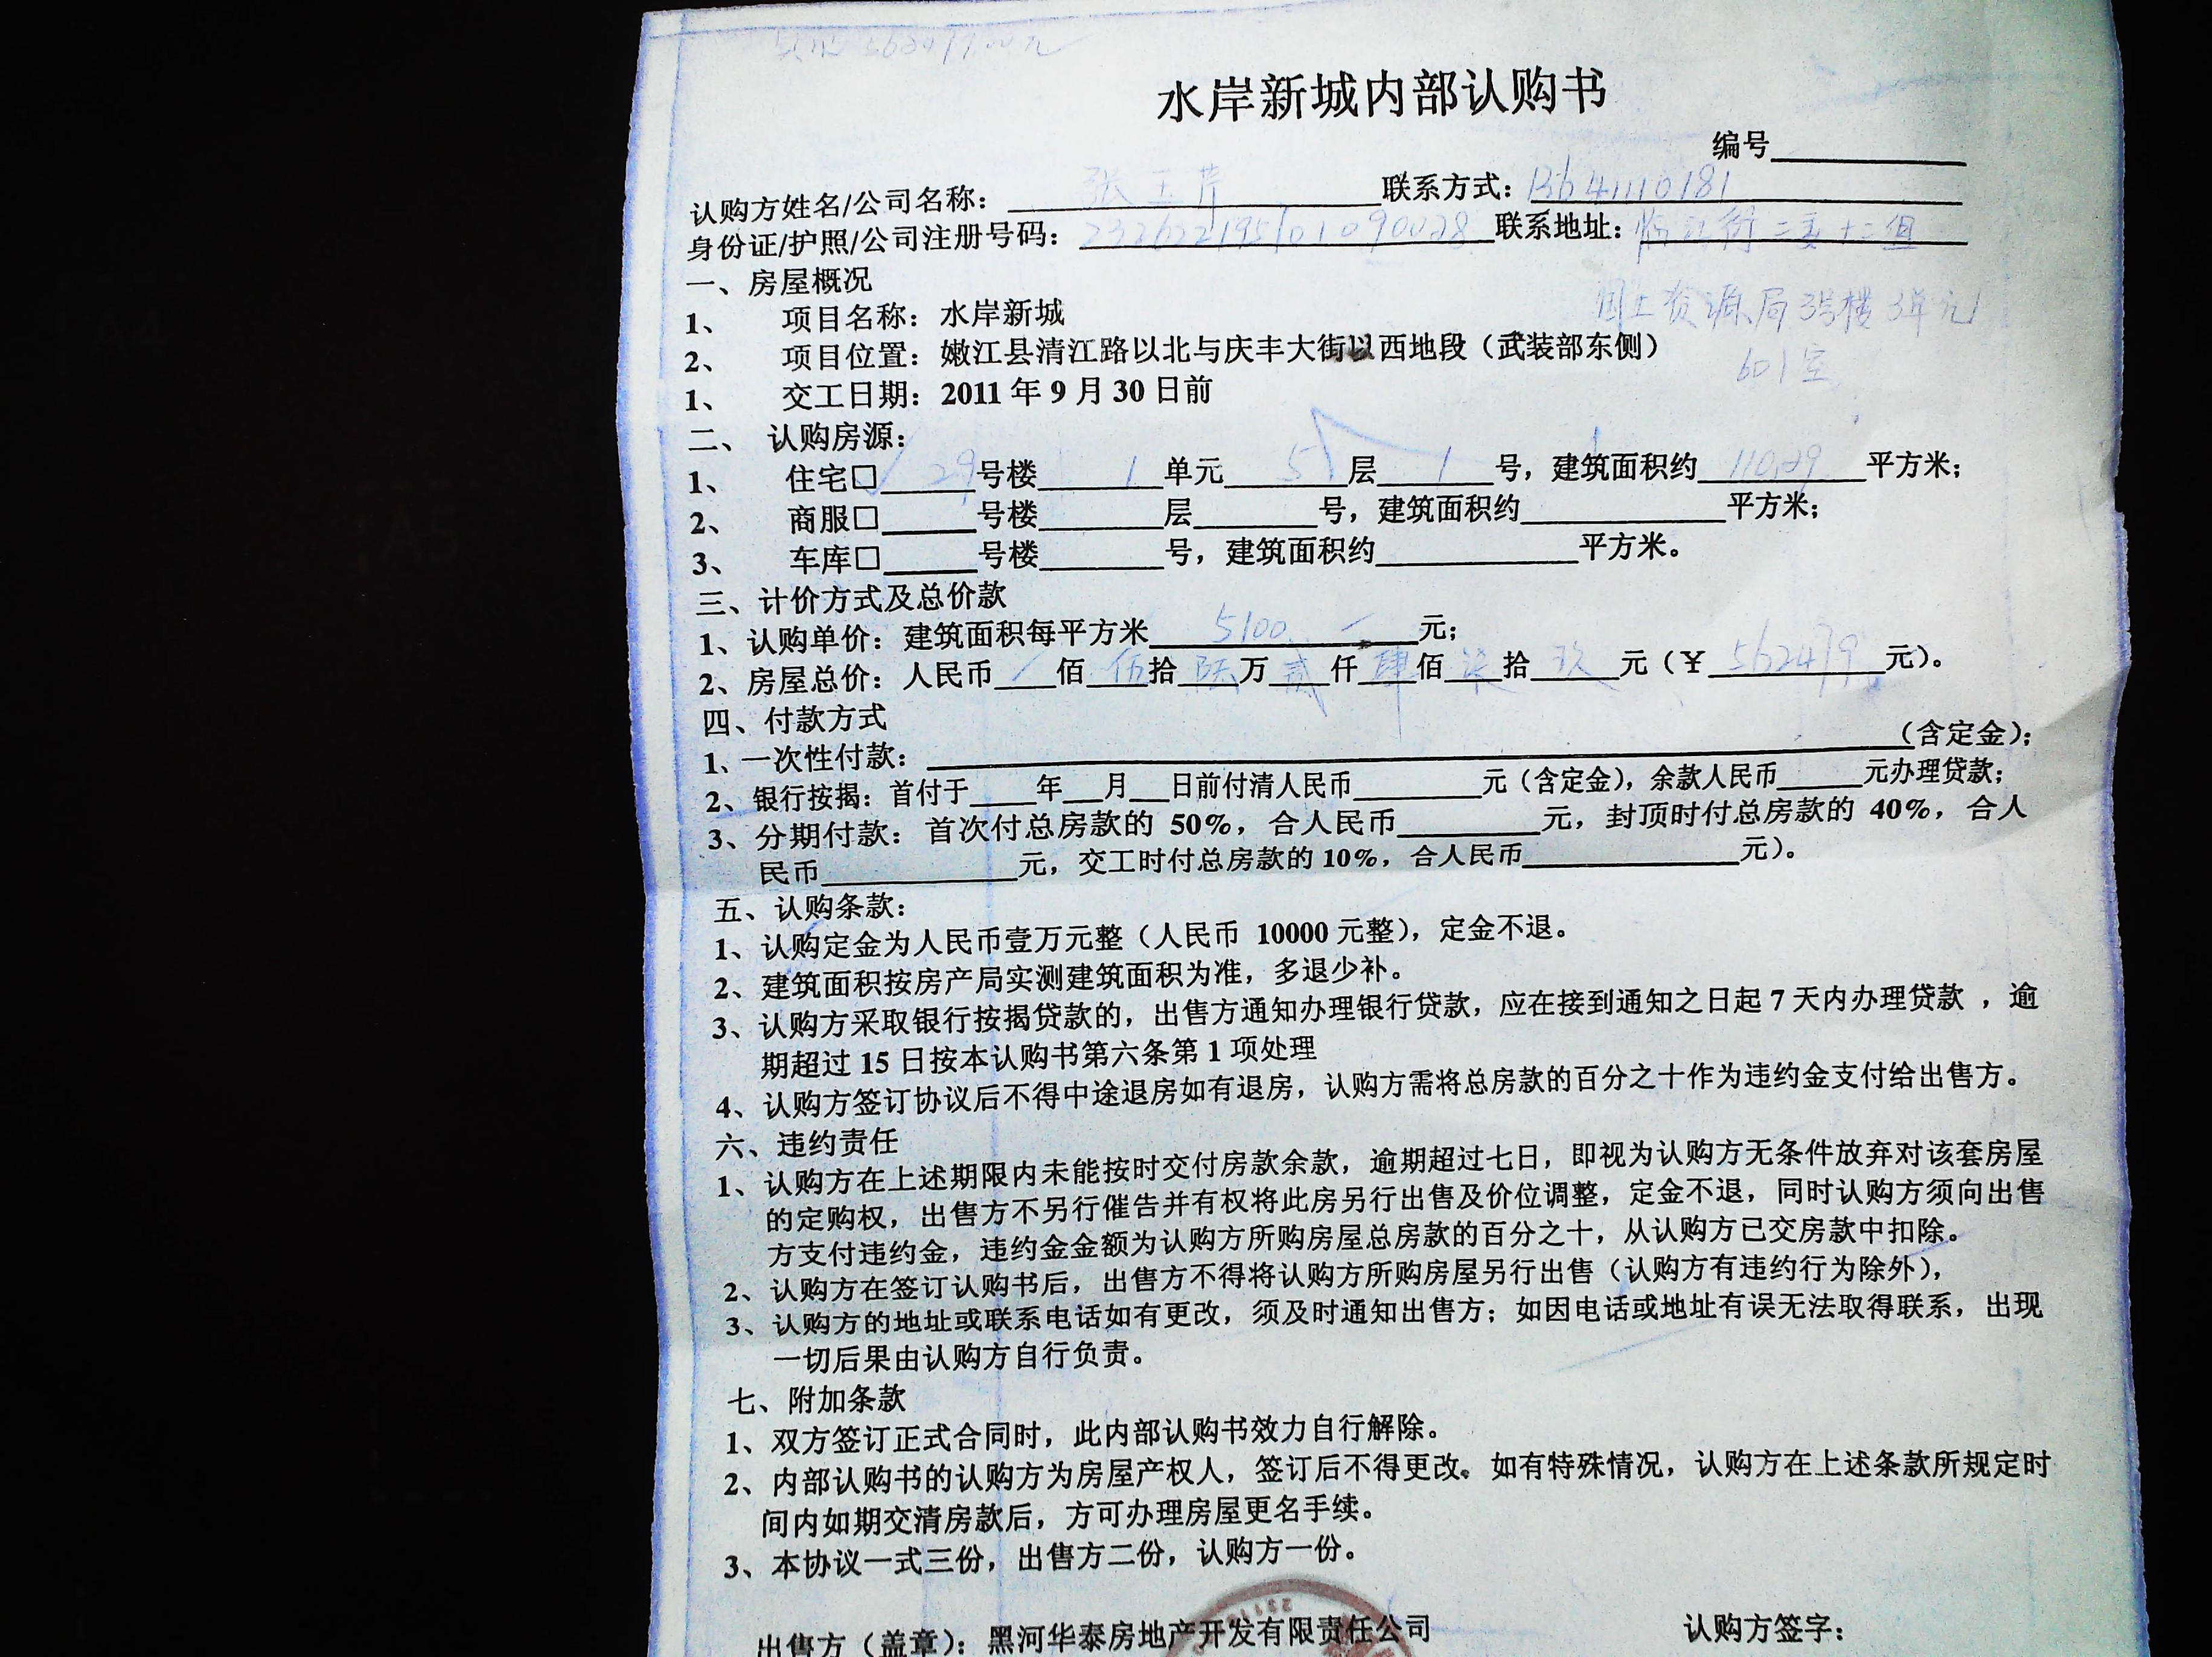 562479.00元
水岸新城内部认购书
编号
认购方姓名/公司名称：张玉芹 联系方式：13641110181
身份证/护照/公司注册号码：232622195101090028 联系地址：临江街二委十二组
国土资源局3号楼3单元
601室
一、房屋概况
1、 项目名称：水岸新城
2、 项目位置：嫩江县清江路以北与庆丰大街以西地段（武装部东侧）
1、 交工日期：2011年9月30日前
二、 认购房源：
1、 住宅□ 29号楼 1 单元 5 层 1 号，建筑面积约 110.29 平方米；
2、 商服□ 号楼 层 号，建筑面积约 平方米；
3、 车库□ 号楼 号，建筑面积约 平方米。
三、计价方式及总价款
1、认购单价：建筑面积每平方米 5100 元；
2、房屋总价：人民币 佰 伍 拾 陆 万 贰 仟 肆 佰 柒 拾 玖 元（￥ 562479 元）。
四、付款方式
1、一次性付款： （含定金）；
2、银行按揭：首付于 年 月 日前付清人民币 元（含定金），余款人民币 元办理贷款；
3、分期付款：首次付总房款的 50%，合人民币 元，封顶时付总房款的 40%，合人
民币 元，交工时付总房款的10%，合人民币 元）。
五、认购条款：
1、认购定金为人民币壹万元整（人民币 10000元整），定金不退。
2、建筑面积按房产局实测建筑面积为准，多退少补。
3、认购方采取银行按揭贷款的，出售方通知办理银行贷款，应在接到通知之日起7天内办理贷款 ，逾
期超过15日按本认购书第六条第1项处理
4、认购方签订协议后不得中途退房如有退房，认购方需将总房款的百分之十作为违约金支付给出售方。
六、违约责任
1、认购方在上述期限内未能按时交付房款余款，逾期超过七日，即视为认购方无条件放弃对该套房屋
的定购权，出售方不另行催告并有权将此房另行出售及价位调整，定金不退，同时认购方须向出售
方支付违约金，违约金金额为认购方所购房屋总房款的百分之十，从认购方已交房款中扣除。
2、认购方在签订认购书后，出售方不得将认购方所购房屋另行出售（认购方有违约行为除外），
3、认购方的地址或联系电话如有更改，须及时通知出售方；如因电话或地址有误无法取得联系，出现
一切后果由认购方自行负责。
七、附加条款
1、双方签订正式合同时，此内部认购书效力自行解除。
2、内部认购书的认购方为房屋产权人，签订后不得更改。如有特殊情况，认购方在上述条款所规定时
间内如期交清房款后，方可办理房屋更名手续。
3、本协议一式三份，出售方二份，认购方一份。
出售方（盖章）：黑河华泰房地产开发有限责任公司 认购方签字：
A4
A5